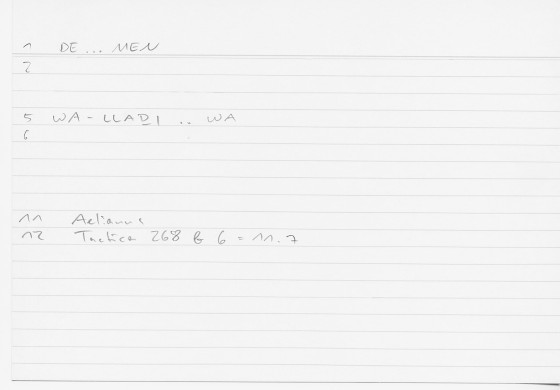 1 DE ... MEN
2
5 WA-LLADI .. WA
6
11 Aelianus
12 Tactica 268 B 6 = 11.7